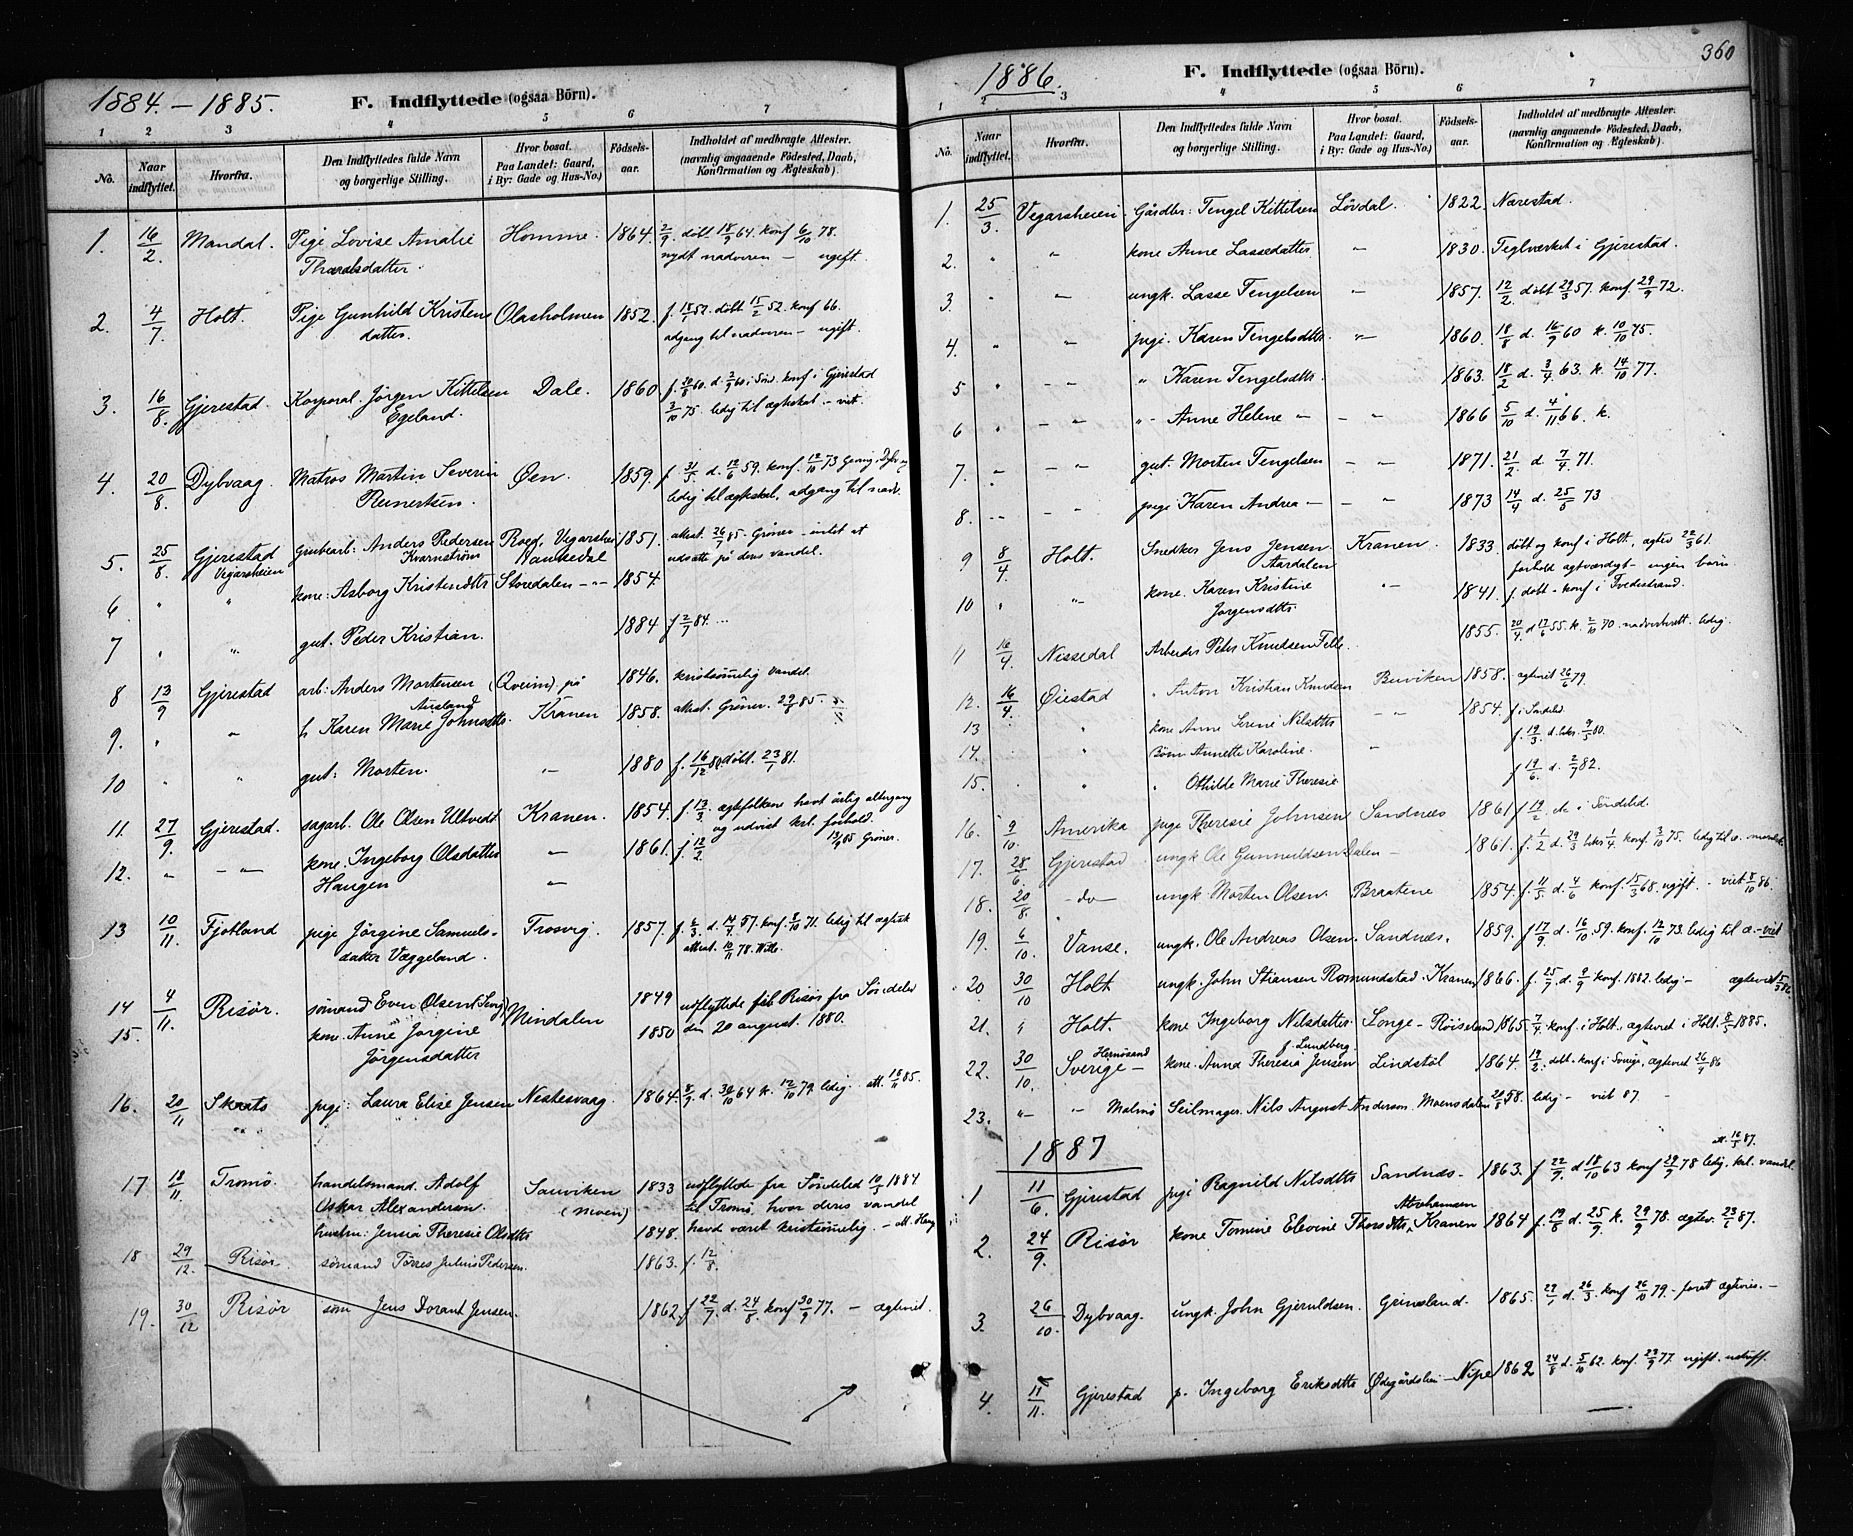 1884. - 1885.
F. Indflyttede (ogsaa Börn).
1 2 3 4 5 6 7
No.
Naar indflyttet.
Hvorfra.
Den Indflyttedes fulde Navn og borgerlige Stilling.
Hvor bosat. Paa Landet: Gaard, i By: Gade og Hus-No.)
Födsels-aar.
Indholdet af medbragte Attester. (navnlig angaaende Födested, Daab, Konfirmation og Ægteskab).
1. 16/2 Mandal. Pige Lovise Amalie Homme. 1864. 2/9. döbt 18/9 64. konf 6/10 78.
nydt nadveren — ugift.
2. 4/7 Holt. Pige Gunhild Kristens Olasholmen 1852. döbt 15/2 52. konf 66.
datter. adgang til nadveren — ugift.
3. 16/8. Gjerestad. Korporal. Jörgen Kittelsen Dale. 1860 konf i Gjerestad
Egeland. 3/10 75. ledig til ægteskab — viet.
4. 20/8. Dybvaag. Matros Martin Severin Öen. 1859. f. 31/5. d. 12/6 59. konf. 12/10 73
Reinertsen. ledig til ægteskab, adgang til nadv.
5. 25/8. Gjerestad Anders Pedersen Vegarsheien 1851. attest. 26/7 85. Gröner — intet at
Vegarsheien Kvarnström Vandsedal udsætte på dens vandel.
6 " " kone: Asborg Kristensdttr Storedalen — 1854.
7 " " gut. Peder Kristian. 1884 f 2/7 84. ...
8 13/9 Gjerestad arb: Anders Mortensen (Qveim) på 1846. kristsömmelig vandel.
Ausland
9. " " h. Karen Marie Johnsdttr. Kranen 1858. attest. Gröner.
10 " " gut: Morten. — 1880 f. 16/12 80. döbt. 23/1 81.
11. 27/9. Gjerestad. sagarb. Ole Olsen Ulltvedt Kranen. 1854. f. 13/3. ægtefolkene havt årlig altergang
og udvist krl. forhold.
12. " — kone. Ingeborg Olsdatter — 1861. f. 12/2 13/9 85 Gröner.
Haugen —
13 10/11. Fjotland pige Jörgine Samuels- Trosvig. 1857. konf. 8/10 71. ledig til ægtesk
datter Væggeland.
14 4/11. Risör. sömand Even Olsen Mindalen 1849 udflyttede til Risör fra Söndeled
15. kone. Anne Jorgine 1850 den 20 august. 1880.
Jörgensdatter
16. 20/11 Skaats pige: Laura Elise Jensen Nestesvaag. 1864. d. 30/10 64 k. 12/10 79. ledig. att. 18/11 85.
17 18/11. Tromö. handelsmand. Adolf Sauviken 1833 udflyttede fra Söndeled 10/3 1884
Oskar Alexandersen. (Moen) til Tromö, hvor deres vandel
hustru: Jensia Theresie Olsdttr 1848. havd været kristsömmelig. — att. Haug
18 29/12. Risör. sömand Törres Julius Pedersen. 1863. f. 12/8.
19. 30/12 Risör söm Jens Dorant Jensen. 1862. f 22/7. d. 24/8. konf 30/9 77. — ægteviet.
1886. 360
F. Indflyttede (ogsaa Börn).
1 2 3 4 5 6 7
No.
Naar indflyttet.
Hvorfra.
Den Indflyttedes fulde Navn og borgerlige Stilling.
Hvor bosat. Paa Landet: Gaard, i By: Gade og Hus-No.)
Födsels-aar.
Indholdet af medbragte Attester. (navnlig angaaende Födested, Daab, Konfirmation og Ægteskab).
1. 25/3. Vegarsheien. Gårdbr: Tengel Kittelsen Lövdal. 1822. Nærestad.
2. " " kone Anne Lassedatter — 1830. Teglværket i Gjerestad.
3 " " ungk. Lasse Tengelsen — 1857. 12/2. döbt 29/3 57. konf. 29/9 72.
4. " " pige. Karen Tengelsdttr. — 1860. 18/8 d. 16/9 60 k. 10/10 75.
5 " — " Karen Tengelsdttr. 1863. 18/2 d. 3/4 63. k. 14/10 77.
6 " — " — Anne Helene " — — 1866 5/10 d. 4/11 66. k.
7. — — gut. Morten Tengelsen — — 1871. 21/2 d. 7/4 71.
8. — — pige Karen Andrea — — 1873 14/4 d. 25/5 73
9 8/4. Holt. Snedker Jens Jensen Kranen. 1833. döbt og konf i Holt, agtev 22/3 61.
Stardalen forhold agtværdigt — ingen börn.
10 " " kone. Karen Kristine — 1841. f. döbt — konf i Tvedestrand.
Jorgensdttr.
11 16/4. Nissedal Arbeider Peter Knudsen Felle. 1855. 20/4. d 17/6 55. k. 2/10 70. ledig.
12. 16/4. Öiestad " Anton Kristian Knudsen Buviken 1858. agteviet 26/6 79.
13 " kone Anne Serine Nilsdttr — 1854. f. i Sönedled
14. " Börn Annette Karoline. — f. 19/3. d. 9/5 80.
15. " " Othilde Marie Theresie f. 19/6. d. 2/7 82.
16. 9/10. Amerika pige Theresie Johnsen Sandnæs 1861 f 19/2. i Söndeled.
17. 28/6 Gjerestad ungk Ole Gunnuldsen Dalen — 1861. f. 1/2 d. 29/3 konf. 3/10 75.
18. 20/8. — do — ungk Morten Olsen. Braatene 1854. f. 11/5. d. 4/6 konf. 15/3 68. ugift. — viet 8/10 86.
19. 6/10. Vanse. ungk. Ole Andreas Olsen. Sandnæs. 1859. f 17/9. d. 16/10 59. konf. 12/10 73. ledig til æ. — viet
20 30/10 Holt ungk. John Stiansen Romundstad. Kranen 1866. f. 25/7. d. 9/9 konf. 1882. ledig — agteviet
21. " Holt. kone Ingeborg Nilsdatter. Longe — Röiseland 1865. 7/4. konf. i Holt, agteviet i Holt. 1885.
f. Lundberg.
22. 30/10. Sverige — Hernösand kone. Anna Theresia Jensen Lindstöl 1864. 19/2. döbt. konf. i Sverige, ægteviet
23. " — " Malmö Seilmager. Nils August Anderson. Moensdalen 58. ledig — viet 87. —
1887 att. 87.
1 11/6. Gjerestad pige Ragnild Nilsdttr Sandnæs — 1863. f. 22/9. d 18/10 63 konf 29/9 78 ledig. krl. vandel.
Abrahamsen
2. 24/9. Risör kone Tomine Elevine Thorsdttr, Kranen 1864 f. 19/8 d. 25/9. k. 29/9 78. agtev. 87.
3. 26/10. Dybvaag. ungk. John Gjeruldsen. Grimsland. 1865. d. 26/3. konf 26/10 79. — foret ægtevies. —
4. 11/11. Gjerestad p. Ingeborg Eriksdttr Ödegårdslien — Nipe 1862 24/8 d. 5/10 62. konf. 23/9 77. ugift.